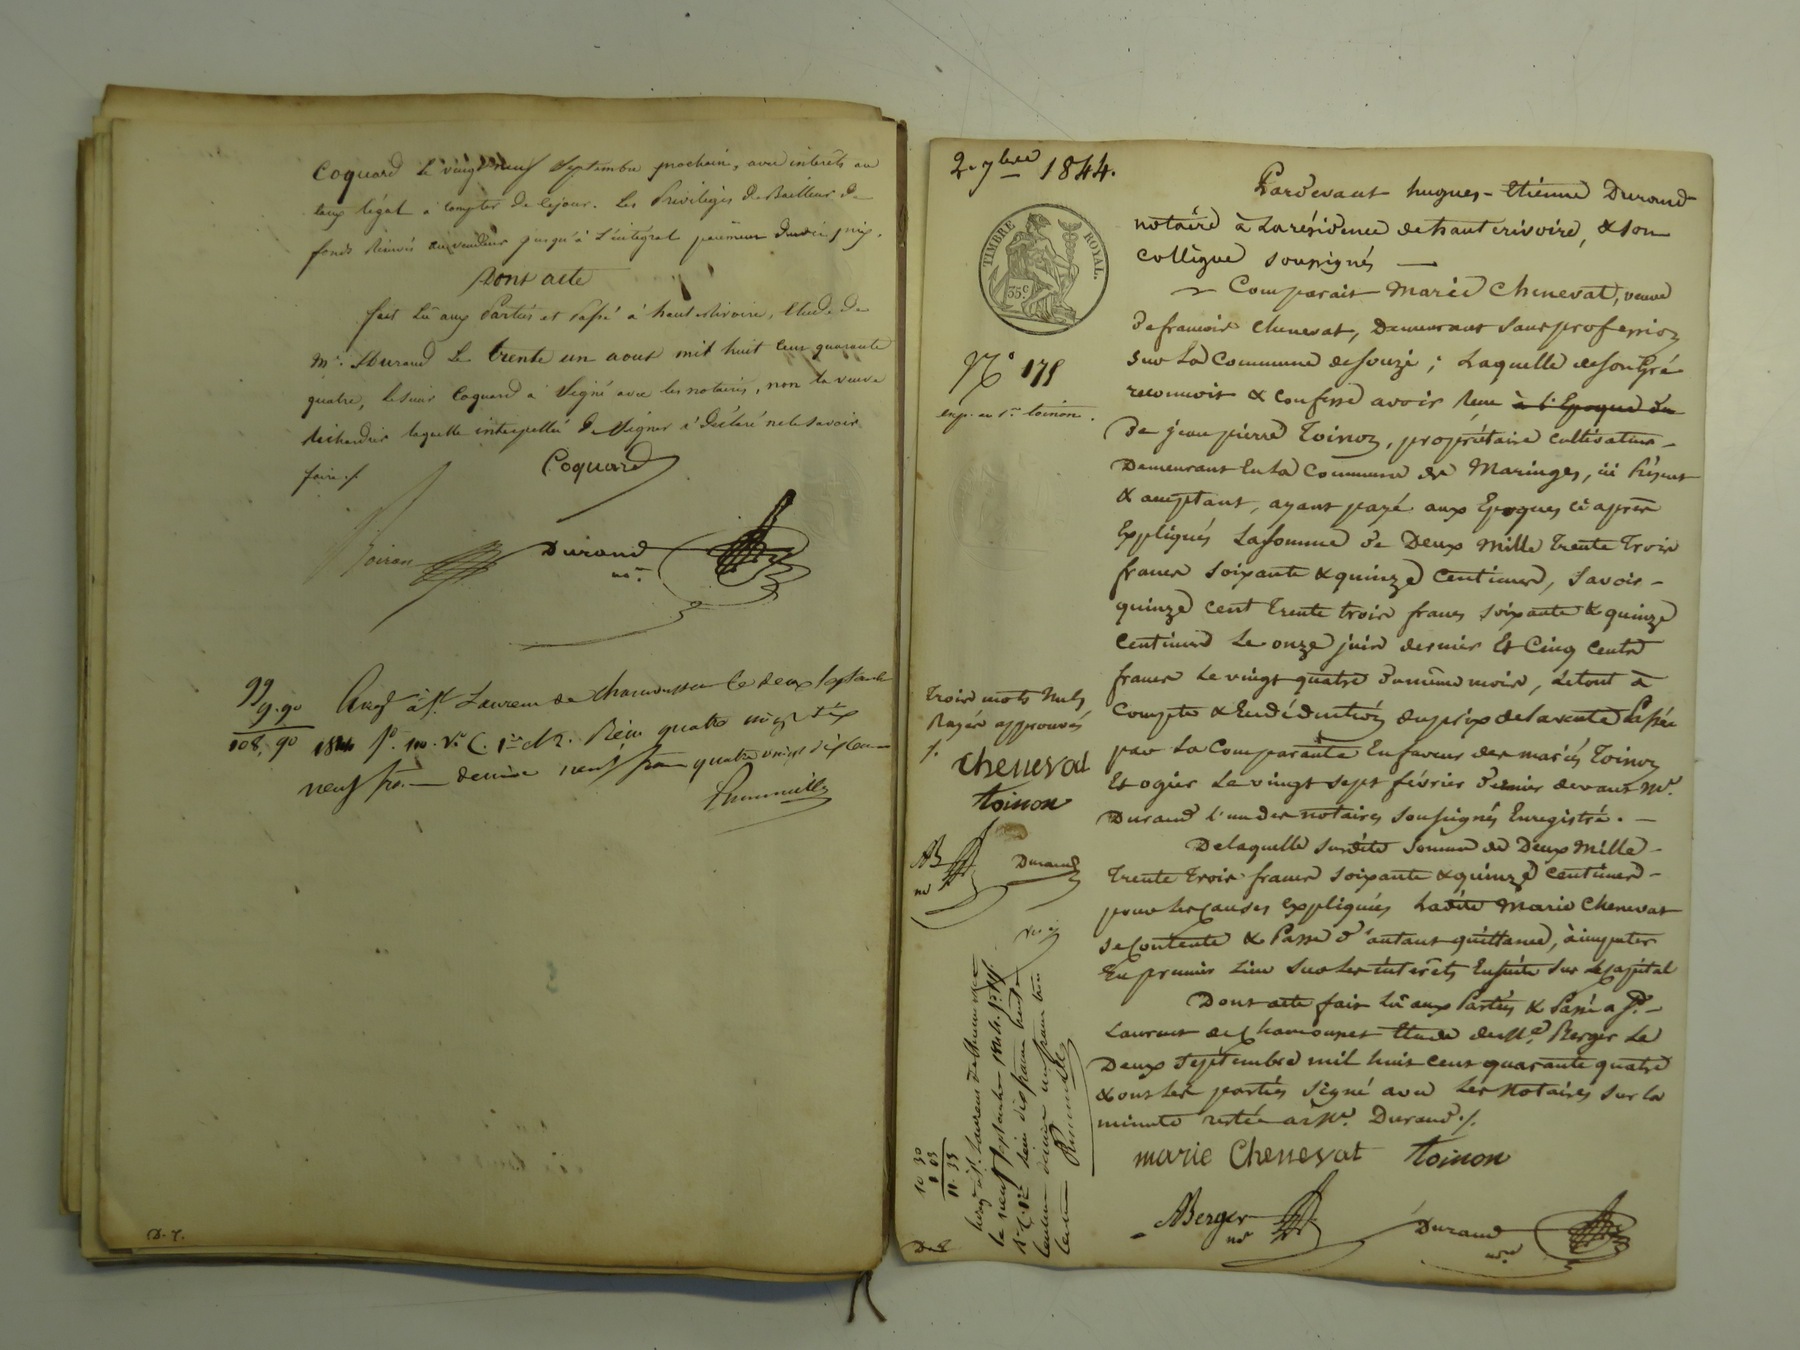 Coquard le vingt neuf Septembre prochain, avec interets au
taux légal à compter de ce jour. Les Privilèges de Bailleur de
fonds réservés au vendeur jusqu'à l'intégral paiement dudit prix.
Dont acte
fait lû aux Parties et passé à hauterivoire, Etude de
Me. Durand Le trente un aout mil huit cent quarante
quatre, Le sieur Coquard a signé avec les notaires, non la veuve
laquelle interpellée de signer a déclaré ne le savoir
faire ./.
Coquard
Durand
nre.
99
9.90
108,90
Enregt à St. Laurent de chamousset le deux septembre
1844 fo. 110. Vo. C. 1re et 2. Reçu quatre vingt dix
neuf fr. decime neuf francs quatre vingt dix cen
D. 7.
2. 7bre 1844.
TIMBRE ROYAL.
35c
No 175
exp. au sr. toinon.
Trois mots nuls
Rayés approuvés
./.
Cheneval
toinon
AB
no
Durand
10 30
1 03
11. 33
D. 8
Enregt à St. Laurent de Chamousset
le neuf septembre 1844. fo.
Pardevant hugues-Etienne Durand
notaire à La résidence de hauterivoire, & son
collègue soussignés —
Comparait Marie Chenevat, veuve
de francois Chenevat, Demeurant sans profession
sur La Commune de souzi ; Laquelle de son gré
reconnoit & confesse avoir Reçu à l'Epoque du
De jean pierre Toinon, propriétaire cultivateur
Demeurant En La Commune de Maringes, ici Présent
& acceptant, ayant payé aux Epoques ci après
Expliqués La somme de Deux Mille Trente Trois
francs soixante & quinze Centimes, savoir -
quinze cent Trente trois francs soixante & quinze
Centimes Le onze juin dernier Et Cinq Cents
francs Le vingt quatre du même mois, Le tout à
Compte & En déduction du prix de la vente Passée
par La Comparante En faveur des mariés Toinon
Et ogier Le vingt sept février dernier devant Me.
Durand l'un des notaires soussignés Enregistré. —
De laquelle susdite somme de Deux Mille -
Trente Trois francs soixante & quinze Centimes -
pour les Causes Expliquées Ladite Marie Chenevat
se Contente & Passe d'autant quittance, à imputer
En premier Lieu sur Les intérêts Ensuite sur le Capital
Dont acte fait Lû aux Parties & Passé a St. -
Laurent de Chamousset Etude de Me. Berger Le
Deux septembre mil huit cent quarante quatre
& ont les parties signé avec Les Notaires sur la
minute restée à Me. Durand ./.
marie Chenevat toinon
ABerger
no
Durand
nre.